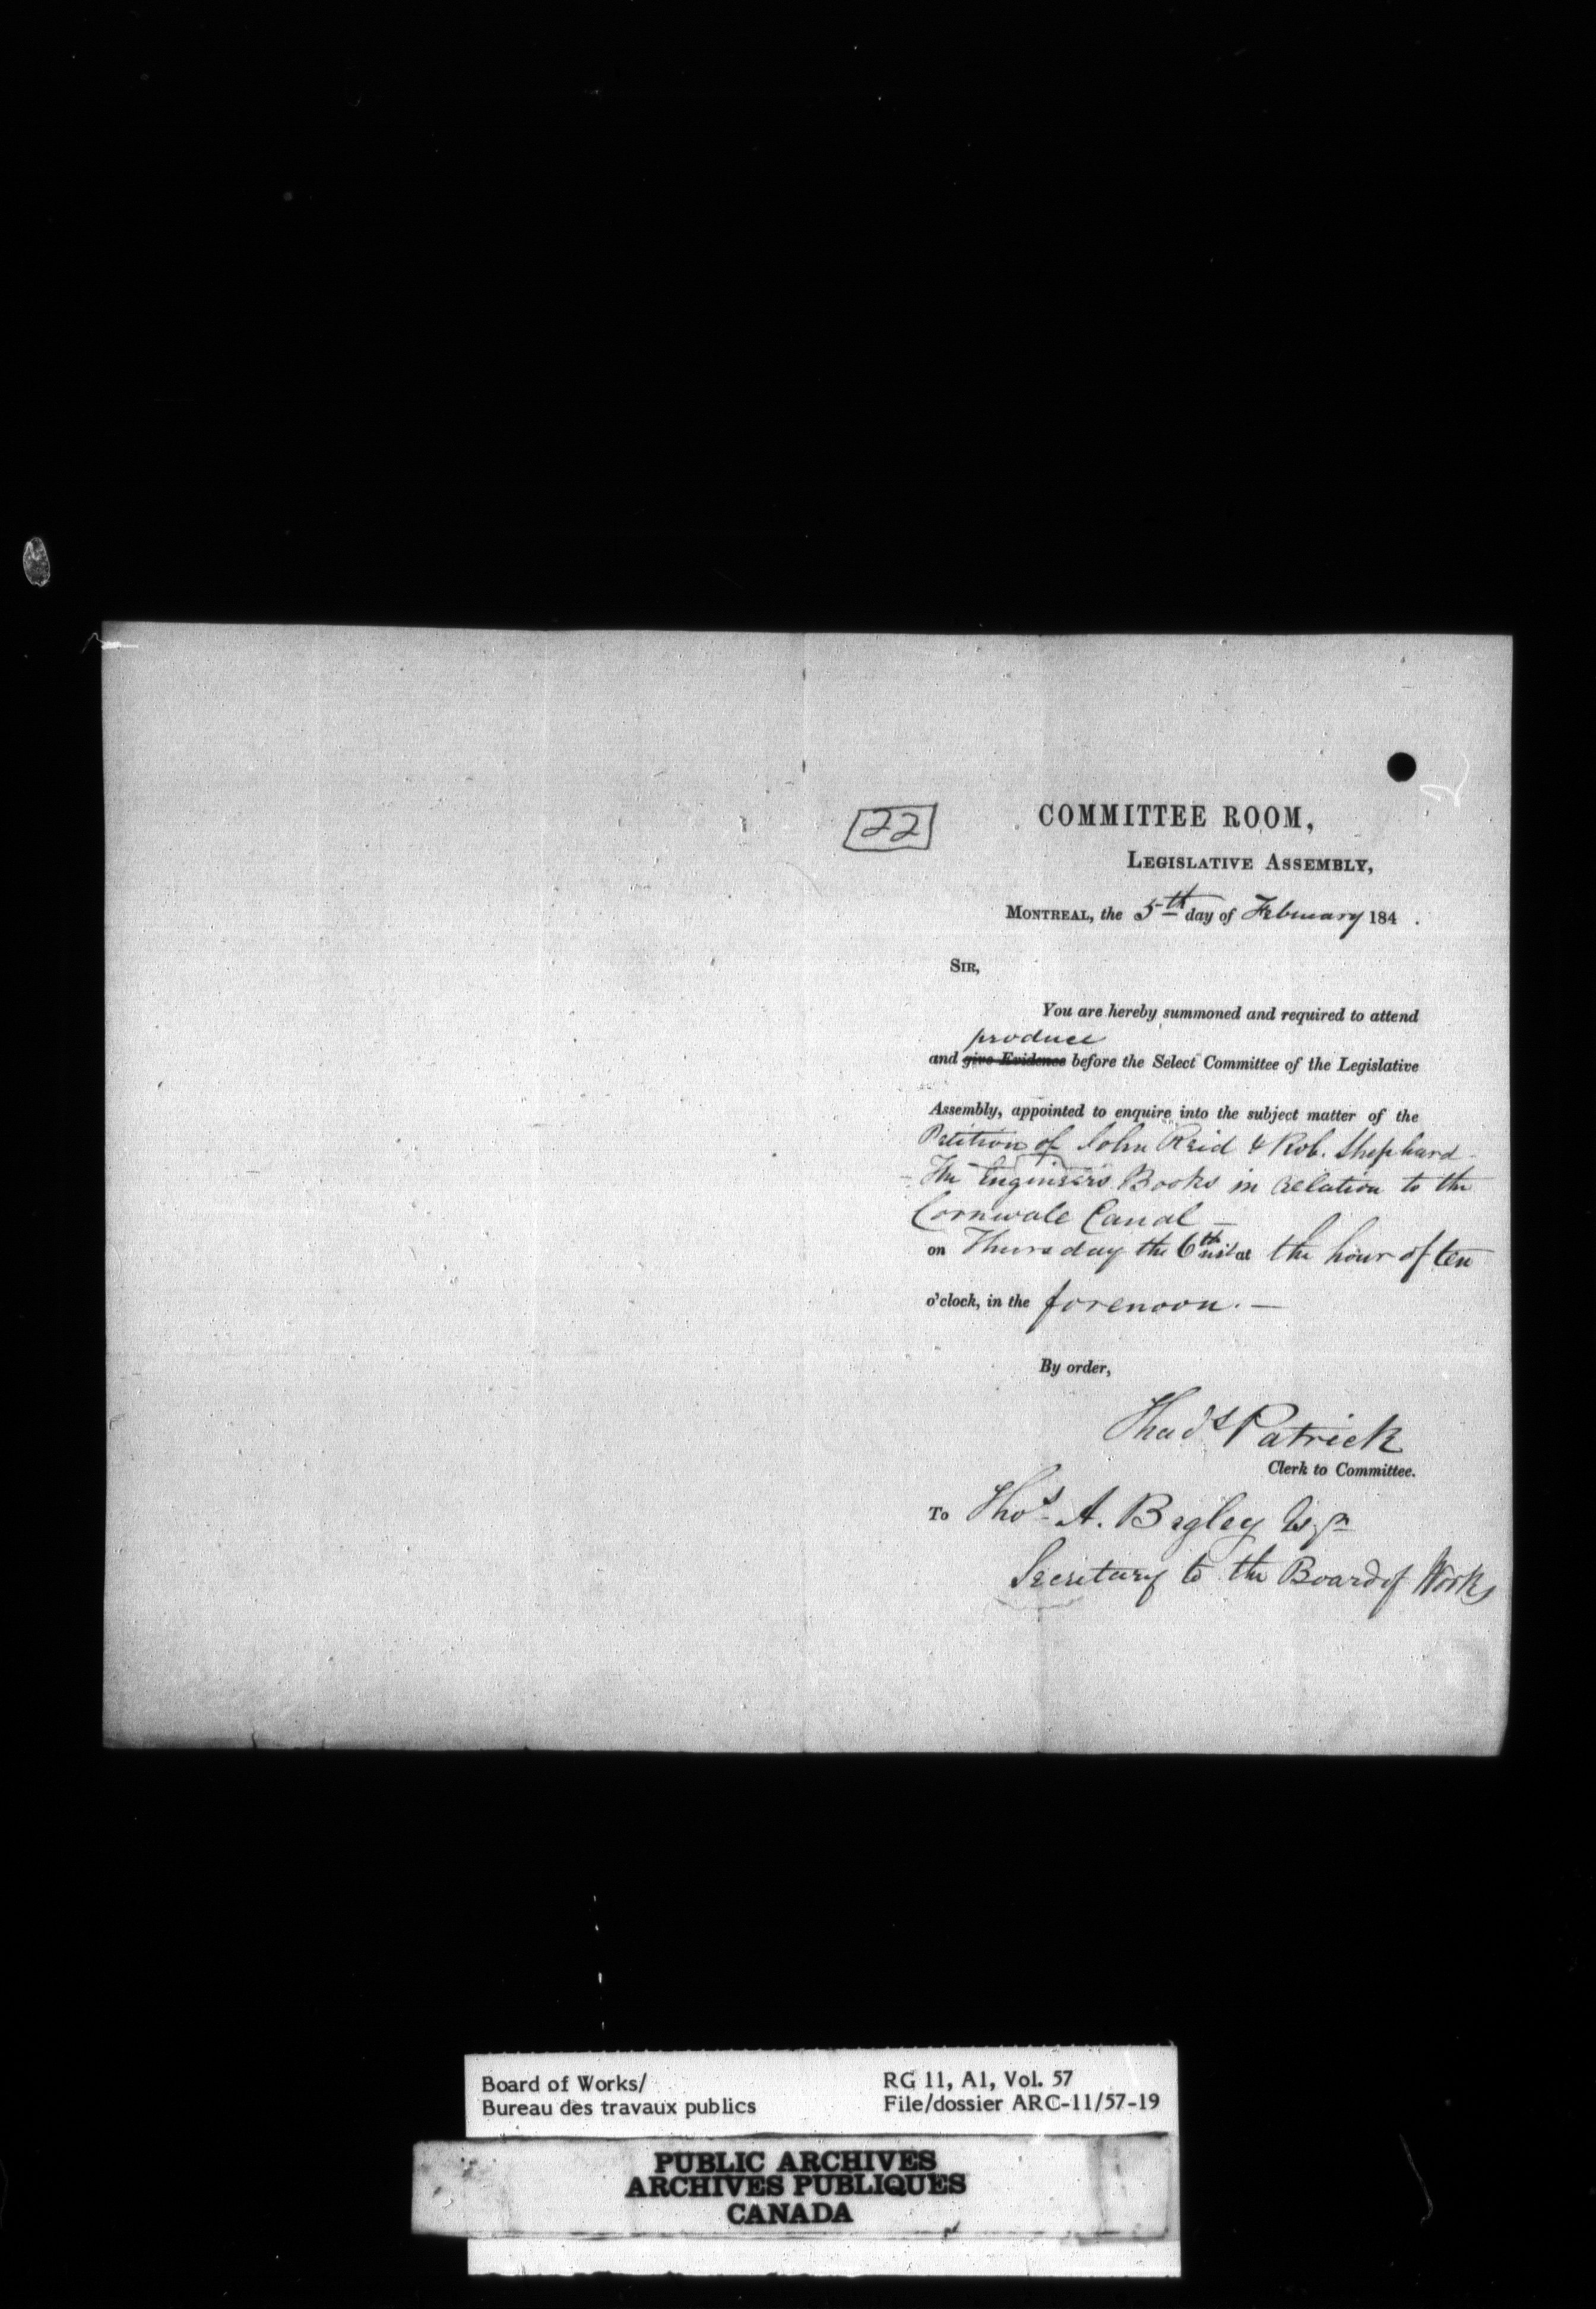 22
COMMITTEE ROOM,
LEGISLATIVE ASSEMBLY,
MONTREAL, the 5th day of February 184 .
SIR,
You are hereby summoned and required to attend
produce
and give Evidence before the Select Committee of the Legislative
Assembly, appointed to enquire into the subject matter of the
Petition of John Reid & Rob. Shephard
The Engineers Books in relation to the
Cornwale Canal —
on Thursday the 6th inst at the hour of ten
o'clock, in the forenoon. —
By order,
Thads Patrick
Clerk to Committee.
To Thos A. Begley Esqr
Secretary to the Board of Works
Board of Works/
Bureau des travaux publics
RG 11, A1, Vol. 57
File/dossier ARC-11/57-19
PUBLIC ARCHIVES
ARCHIVES PUBLIQUES
CANADA